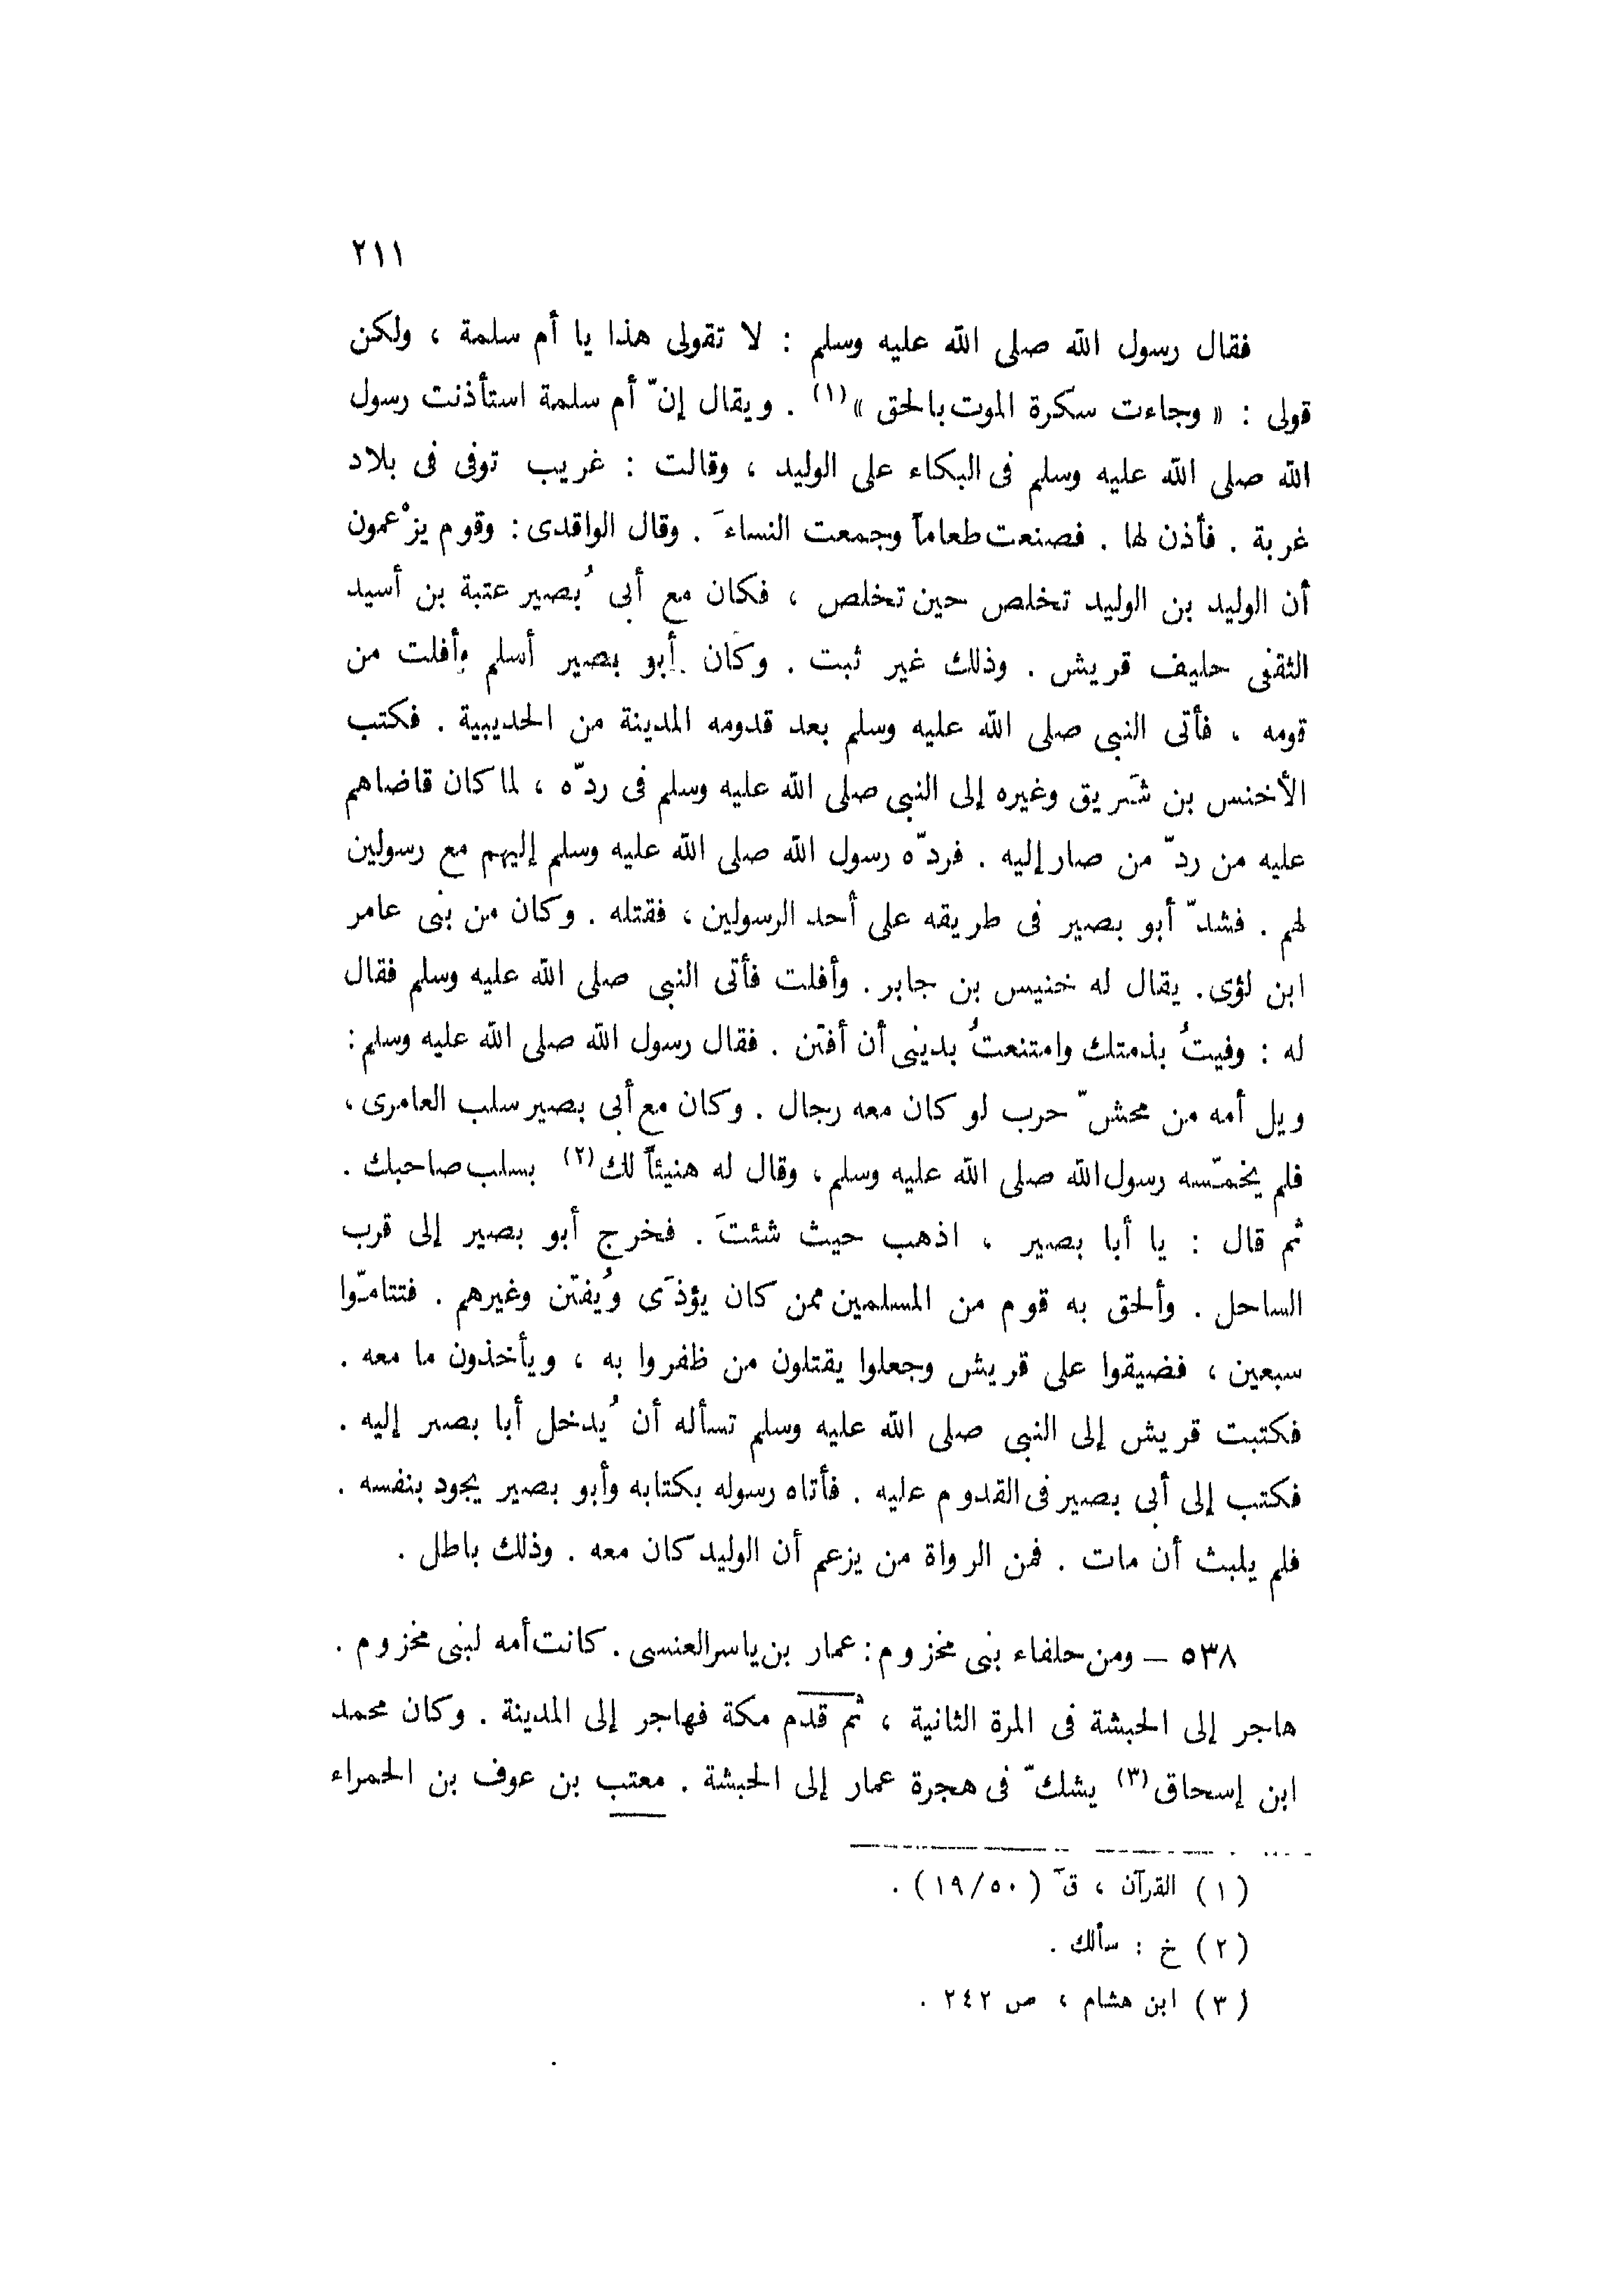 ٢١١
فقال رسول الله صلى الله عليه وسلم : لا تقولى هذا يا أم سلمة ، ولكن
قولى : « وجاءت سكرة الموت بالحق »(١) . ويقال إنّ أم سلمة استأذنت رسول
الله صلى الله عليه وسلم فى البكاء على الوليد ، وقالت : غريب توفى فى بلاد
غربة . فأذن لها . فصنعت طعاماً وجمعت النساءَ . وقال الواقدى : وقوم يزْعمون
أن الوليد بن الوليد تخلص حين تخلص ، فكان مع أبى بُصير عتبة بن أسيد
الثقفى حليف قريش . وذلك غير ثبت . وكان أبو بصير أسلم وأفلت من
قومه ، فأتى النبى صلى الله عليه وسلم بعد قدومه المدينة من الحديبية . فكتب
الأخنس بن شَريق وغيره إلى النبى صلى الله عليه وسلم فى ردّه ، لما كان قاضاهم
عليه من ردّ من صار إليه . فردّه رسول الله صلى الله عليه وسلم إليهم مع رسولين
لهم . فشدّ أبو بصير فى طريقه على أحد الرسولين ، فقتله . وكان من بنى عامر
ابن لؤى . يقال له خنيس بن جابر . وأفلت فأتى النبى صلى الله عليه وسلم فقال
له : وفيتُ بذمتك وامتنعتُ بدينى أن أفتن . فقال رسول الله صلى الله عليه وسلم :
ويل أمه من محشّ حرب لو كان معه رجال . وكان مع أبى بصير سلب العامرى ،
فلم يخمّسه رسول الله صلى الله عليه وسلم ، وقال له هنيئاً لك(٢) بسلب صاحبك .
ثم قال : يا أبا بصير ، اذهب حيث شئتَ . فخرج أبو بصير إلى قرب
الساحل . وألحق به قوم من المسلمين ممن كان يؤذَى ويُفتَن وغيرهم . فتتامّوا
سبعين ، فضيقوا على قريش وجعلوا يقتلون من ظفروا به ، ويأخذون ما معه .
فكتبت قريش إلى النبى صلى الله عليه وسلم تسأله أن يُدخل أبا بصير إليه .
فكتب إلى أبى بصير فى القدوم عليه . فأتاه رسوله بكتابه وأبو بصير يجود بنفسه .
فلم يلبث أن مات . فمن الرواة من يزعم أن الوليد كان معه . وذلك باطل .
٥٣٨ – ومن حلفاء بنى مخزوم : عمار بن ياسر العنسى . كانت أمه لبنى مخزوم .
هاجر إلى الحبشة فى المرة الثانية ، ثم قدم مكة فهاجر إلى المدينة . وكان محمد
ابن إسحاق(٣) يشكّ فى هجرة عمار إلى الحبشة . معتب بن عوف بن الحمراء
(١) القرآن ، قٓ (١٩/٥٠) .
(٢) خ : سألك .
(٣) ابن هشام ، ص ٢٤٢ .